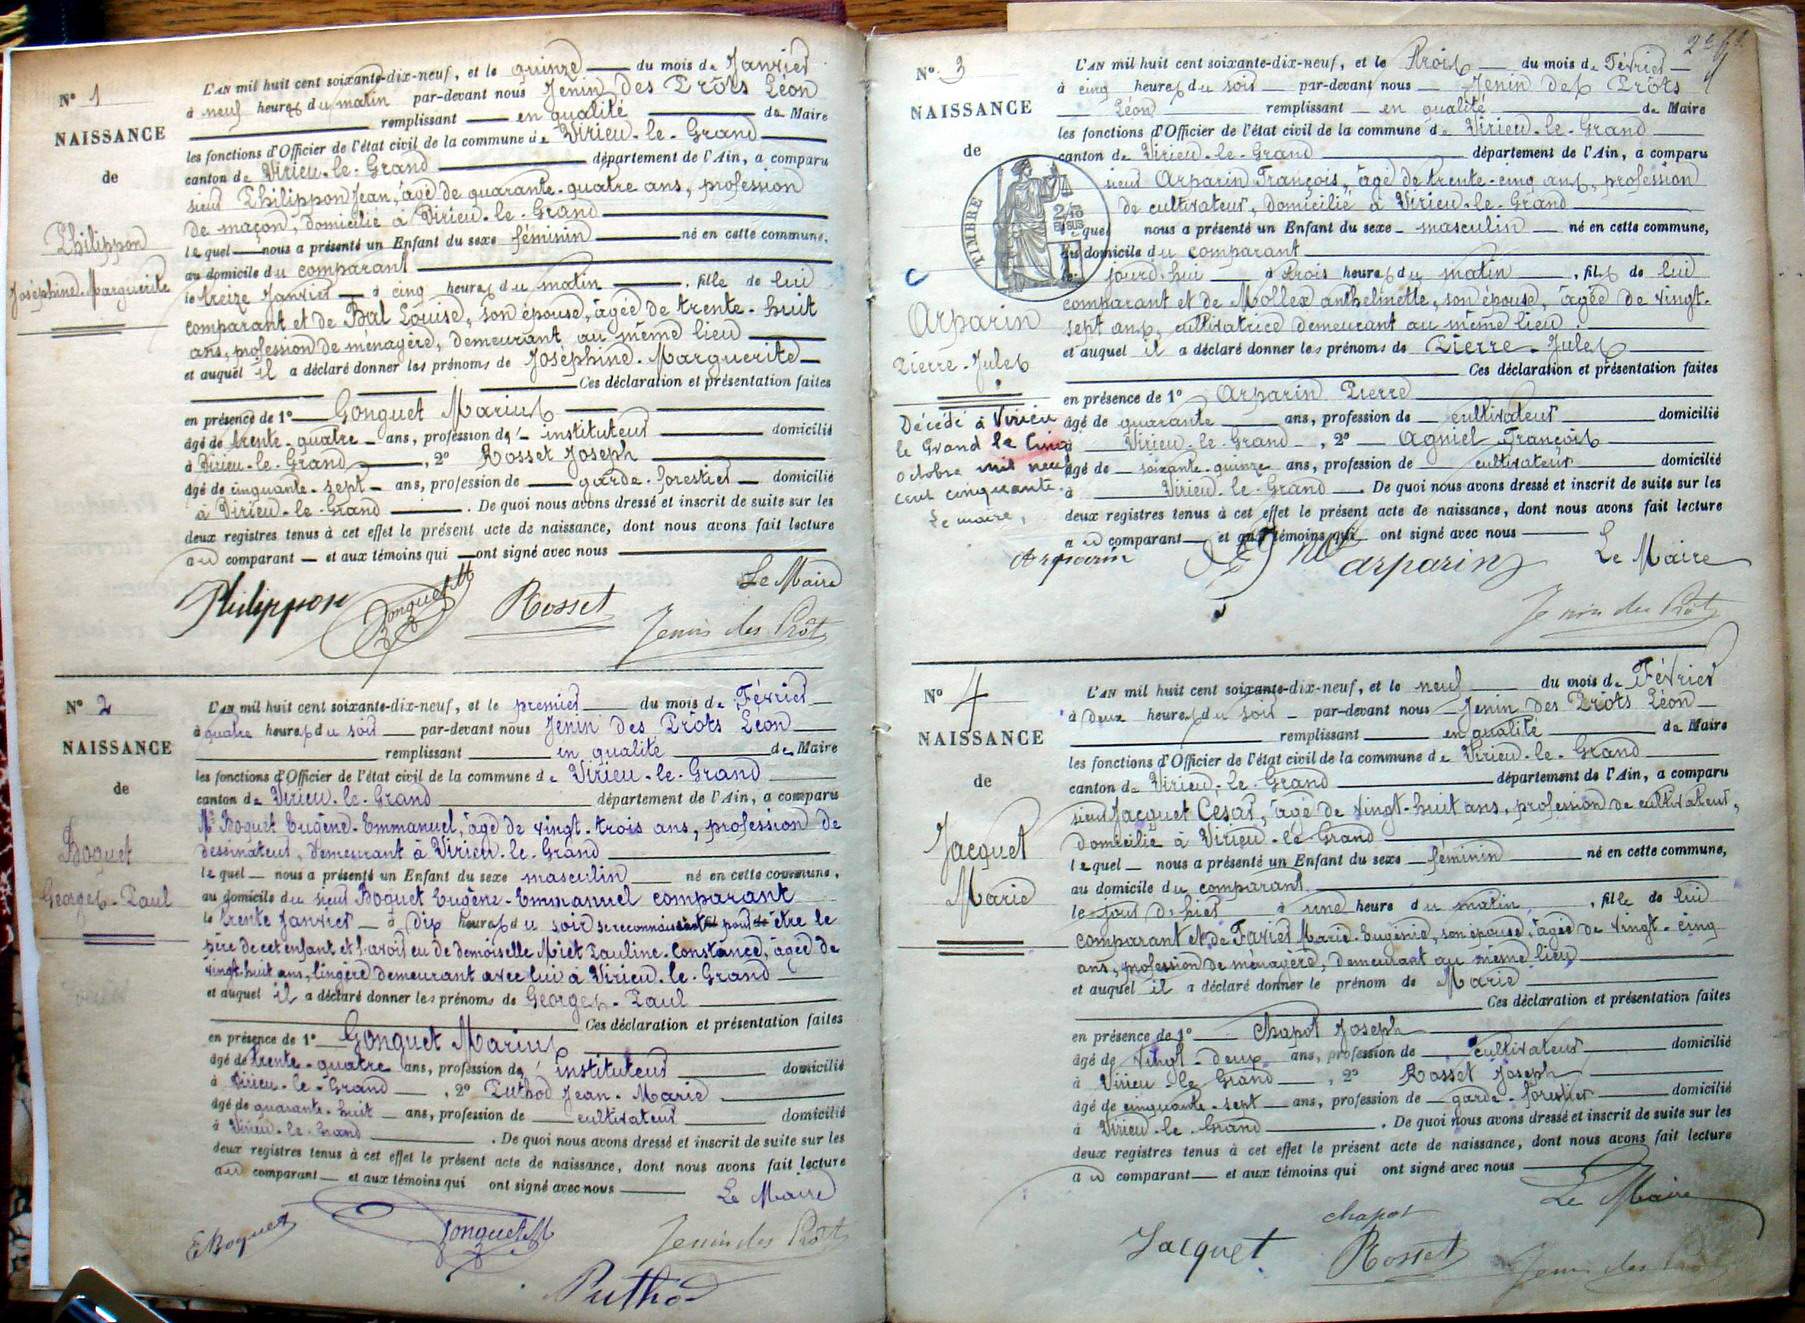 N° 1
NAISSANCE
de
Philippon
Joséphine-Marguerite
L'AN mil huit cent soixante-dix-neuf, et le quinze du mois de Janvier
à neuf heures du matin par-devant nous Jenin des Prôts Léon
remplissant en qualité de Maire
les fonctions d'Officier de l'état civil de la commune de Virieu-le-Grand
canton de Virieu-le-Grand département de l'Ain, a comparu
sieur Philippon Jean, âgé de quarante-quatre ans, profession
de maçon, domicilié à Virieu-le-Grand
lequel nous a présenté un Enfant du sexe féminin né en cette commune,
au domicile du comparant
le treize Janvier à cinq heures du matin, fille de lui
comparant et de Bal Louise, son épouse, âgée de trente-huit
ans, profession de ménagère, demeurant au même lieu
et auquel il a déclaré donner les prénoms de Joséphine-Marguerite
Ces déclaration et présentation faites
en présence de 1° Gonguet Marius
âgé de trente-quatre ans, profession d' instituteur domicilié
à Virieu-le-Grand, 2° Rosset Joseph
âgé de cinquante-sept ans, profession de garde-forestier domicilié
à Virieu-le-Grand. De quoi nous avons dressé et inscrit de suite sur les
deux registres tenus à cet effet le présent acte de naissance, dont nous avons fait lecture
au comparant et aux témoins qui ont signé avec nous
Le Maire
Philippon Gonguet M Rosset Jenin des Prôts
N° 2
NAISSANCE
de
Boquet
Georges-Paul
L'AN mil huit cent soixante-dix-neuf, et le premier du mois de Février
à quatre heures du soir par-devant nous Jenin des Prôts Léon
remplissant en qualité de Maire
les fonctions d'Officier de l'état civil de la commune de Virieu-le-Grand
canton de Virieu-le-Grand département de l'Ain, a comparu
Mr Boquet Eugène-Emmanuel, âgé de vingt-trois ans, profession de
dessinateur, demeurant à Virieu-le-Grand
lequel nous a présenté un Enfant du sexe masculin né en cette commune,
au domicile du sieur Boquet Eugène-Emmanuel comparant
le trente Janvier à dix heures du soir se reconnaissant pour être le
père de cet enfant et l'avoir eu de demoiselle Miet Pauline-Constance, âgée de
vingt-huit ans, lingère demeurant avec lui à Virieu-le-Grand
et auquel il a déclaré donner les prénoms de Georges-Paul
Ces déclaration et présentation faites
en présence de 1° Gonguet Marius
âgé de trente-quatre ans, profession d' instituteur domicilié
à Virieu-le-Grand, 2° Puthod Jean-Marie
âgé de quarante-huit ans, profession de cultivateur domicilié
à Virieu-le-Grand. De quoi nous avons dressé et inscrit de suite sur les
deux registres tenus à cet effet le présent acte de naissance, dont nous avons fait lecture
au comparant et aux témoins qui ont signé avec nous
Le Maire
E Boquet Gonguet M Jenin des Prôts
Puthod
N° 3
NAISSANCE
de
TIMBRE
Arparin
Pierre-Jules
Décédé à Virieu
le Grand le Cinq
octobre mil neuf
cent cinquante.
Le maire,
L'AN mil huit cent soixante-dix-neuf, et le trois du mois de Février
à cinq heures du soir par-devant nous Jenin des Prôts
Léon remplissant en qualité de Maire
les fonctions d'Officier de l'état civil de la commune de Virieu-le-Grand
canton de Virieu-le-Grand département de l'Ain, a comparu
sieur Arparin François, âgé de trente-cinq ans, profession
de cultivateur, domicilié à Virieu-le-Grand
lequel nous a présenté un Enfant du sexe masculin né en cette commune,
au domicile du comparant
jourd'hui à trois heures du matin, fils de lui
comparant et de Mollex anthelmette, son épouse, âgée de vingt-
sept ans, cultivatrice demeurant au même lieu
et auquel il a déclaré donner les prénoms de Pierre-Jules
Ces déclaration et présentation faites
en présence de 1° Arparin Pierre
âgé de quarante ans, profession de cultivateur domicilié
à Virieu-le-Grand, 2° Agniel François
âgé de soixante-quinze ans, profession de cultivateur domicilié
à Virieu-le-Grand. De quoi nous avons dressé et inscrit de suite sur les
deux registres tenus à cet effet le présent acte de naissance, dont nous avons fait lecture
au comparant et aux témoins qui ont signé avec nous
Le Maire
Arparin arparin
Jenin des Prôts
N° 4
NAISSANCE
de
Jacquet
Marie
L'AN mil huit cent soixante-dix-neuf, et le neuf du mois de Février
à deux heures du soir par-devant nous Jenin des Prôts Léon
remplissant en qualité de Maire
les fonctions d'Officier de l'état civil de la commune de Virieu-le-Grand
canton de Virieu-le-Grand département de l'Ain, a comparu
sieur Jacquet César, âgé de vingt-huit ans, profession de cultivateur,
domicilié à Virieu-le-Grand
lequel nous a présenté un Enfant du sexe féminin né en cette commune,
au domicile du comparant
le jour d'hier à une heure du matin, fille de lui
comparant et de Favier Marie-Eugénie, son épouse, âgée de vingt-cinq
ans, profession de ménagère, demeurant au même lieu
et auquel il a déclaré donner le prénom de Marie
Ces déclaration et présentation faites
en présence de 1° Chapot Joseph
âgé de vingt-deux ans, profession de cultivateur domicilié
à Virieu-le-Grand, 2° Rosset Joseph
âgé de cinquante-sept ans, profession de garde-forestier domicilié
à Virieu-le-Grand. De quoi nous avons dressé et inscrit de suite sur les
deux registres tenus à cet effet le présent acte de naissance, dont nous avons fait lecture
au comparant et aux témoins qui ont signé avec nous
Le Maire
chapot
Jacquet Rosset Jenin des Prôts